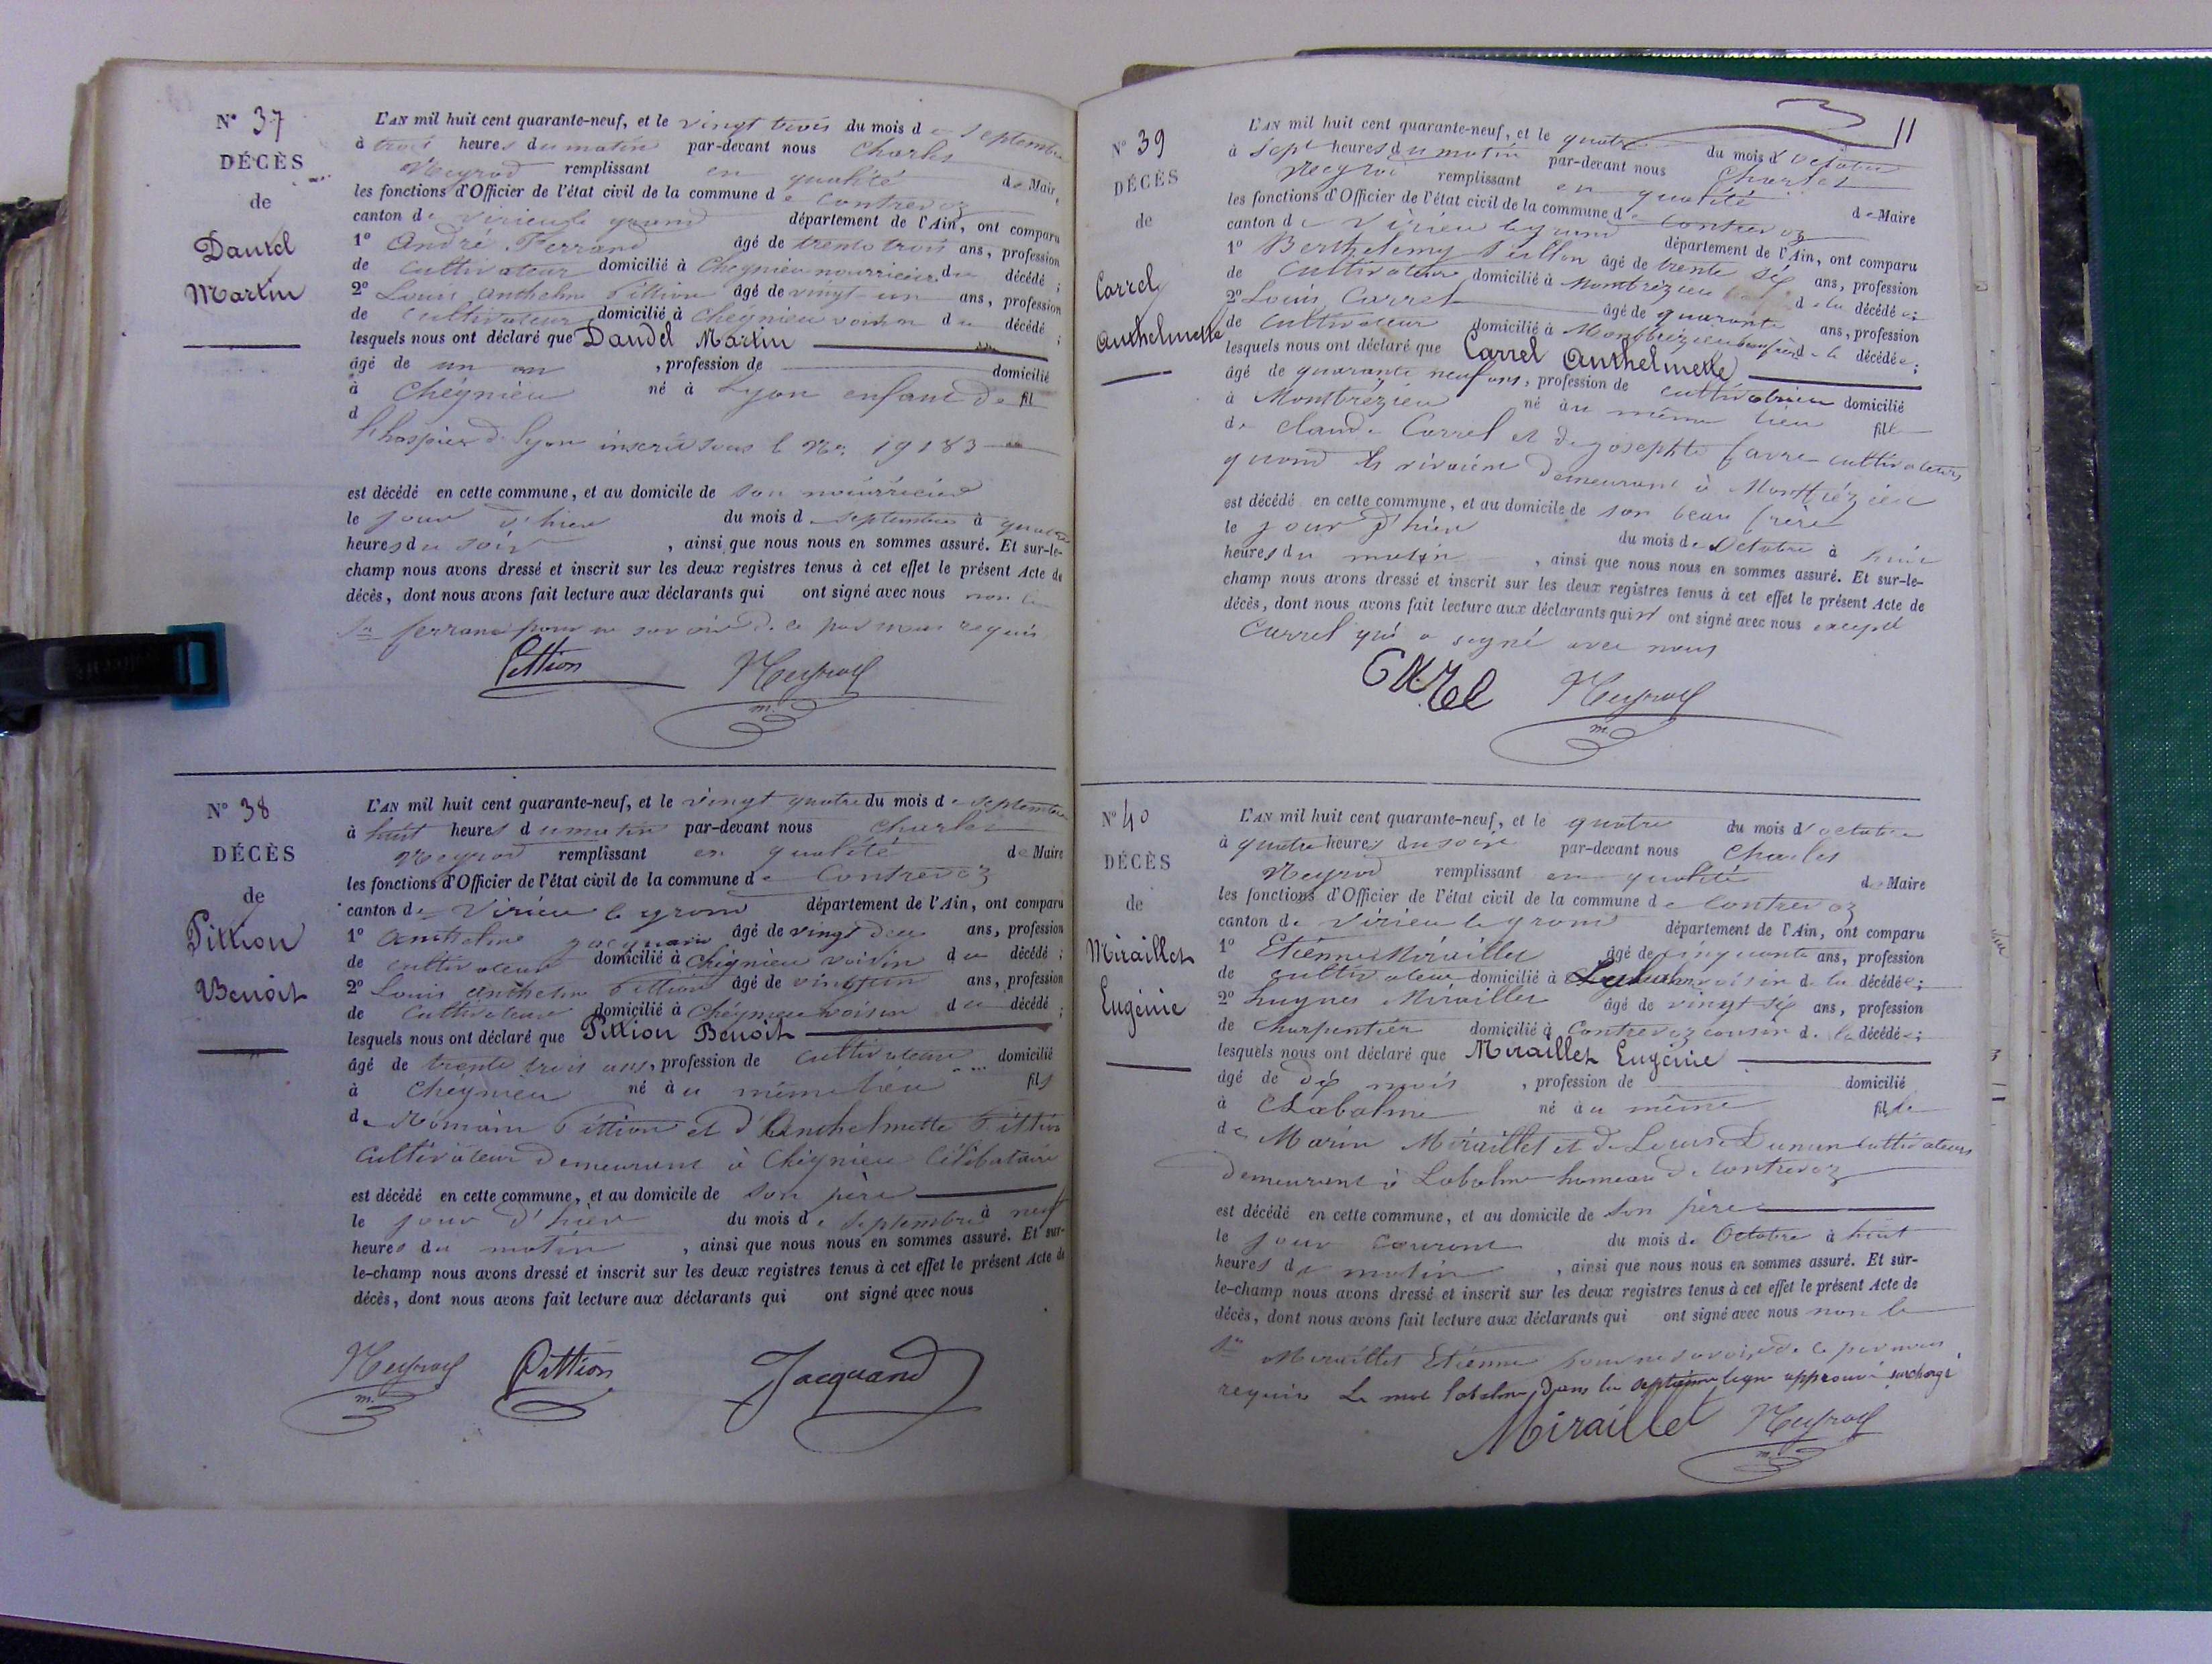 N° 37
DÉCÈS
de
Daudel
Martin
L'AN mil huit cent quarante-neuf, et le vingt trois du mois de septembre
à trois heures du matin par-devant nous Charles
Meyrod remplissant en qualité de Maire
les fonctions d'Officier de l'état civil de la commune de Contrevoz
canton de virieu le grand département de l'Ain, ont comparu
1° André Ferrand âgé de trente trois ans, profession
de cultivateur domicilié à Cheignieu nourricier du décédé ;
2° Louis anthelme Pittion âgé de vingt-un ans, profession
de cultivateur domicilié à Cheignieu voisin du décédé ;
lesquels nous ont déclaré que Daudel Martin
âgé de un an , profession de domicilié
à Cheignieu né à Lyon enfant de fil
d
l'hospice de Lyon inscrit sous le No. 19183
est décédé en cette commune, et au domicile de son nourricier
le jour d'hier du mois de septembre à quatre
heures du soir , ainsi que nous nous en sommes assuré. Et sur-le-
champ nous avons dressé et inscrit sur les deux registres tenus à cet effet le présent Acte de
décès, dont nous avons fait lecture aux déclarants qui ont signé avec nous non le
Sr ferrand pour ne savoir de ce par nous requis
Pittion Meyrod
m.
N° 38
DÉCÈS
de
Pittion
Benoit
L'AN mil huit cent quarante-neuf, et le vingt quatre du mois de septembre
à huit heures du matin par-devant nous Charles
Meyrod remplissant en qualité de Maire
les fonctions d'Officier de l'état civil de la commune de Contrevoz
canton de Virieu le grand département de l'Ain, ont comparu
1° anthelme jacquand âgé de vingt deux ans, profession
de cultivateur domicilié à Cheignieu voisin du décédé ;
2° Louis anthelme Pittion âgé de vingt un ans, profession
de cultivateur domicilié à Cheignieu voisin du décédé ;
lesquels nous ont déclaré que Pittion Benoit
âgé de trente trois ans, profession de cultivateur domicilié
à Cheignieu né au même lieu fils
de Romain Pittion et d'Anthelmette Pittion
Cultivateur demeurant à Cheignieu Célibataire
est décédé en cette commune, et au domicile de son père
le jour d'hier du mois de septembre à neuf
heures du matin , ainsi que nous nous en sommes assuré. Et sur-
le-champ nous avons dressé et inscrit sur les deux registres tenus à cet effet le présent Acte de
décès, dont nous avons fait lecture aux déclarants qui ont signé avec nous
Meyrod Pittion Jacquand
m.
11
N° 39
DÉCÈS
de
Carrel
Anthelmette
L'AN mil huit cent quarante-neuf, et le quatre du mois d'octobre
à sept heures du matin par-devant nous Charles
Meyrod remplissant en qualité de Maire
les fonctions d'Officier de l'état civil de la commune de Contrevoz
canton de Virieu le grand département de l'Ain, ont comparu
1° Berthelemy âgé de trente six ans, profession
de cultivateur domicilié à Montbrézieu de la décédée ;
2° Louis Carrel âgé de quarante ans, profession
de cultivateur domicilié à Montbrézieu beau frère de la décédée ;
lesquels nous ont déclaré que Carrel Anthelmette
âgé de quarante neuf ans, profession de cultivatrice domicilié
à Montbrézieu né au même lieu fille
de Claude Carrel et de josephte favre cultivateurs
quand ils vivaient demeurant à Montbrézieu
est décédé en cette commune, et au domicile de son beau frère
le jour d'hier du mois de Octobre à huit
heures du matin , ainsi que nous nous en sommes assuré. Et sur-le-
champ nous avons dressé et inscrit sur les deux registres tenus à cet effet le présent Acte de
décès, dont nous avons fait lecture aux déclarants qui n'ont signé avec nous excepté
Carrel qui a signé avec nous
CARel Meyrod
m.
N° 40
DÉCÈS
de
Miraillet
Eugénie
L'AN mil huit cent quarante-neuf, et le quatre du mois d'octobre
à quatre heures du soir par-devant nous Charles
Meyrod remplissant en qualité de Maire
les fonctions d'Officier de l'état civil de la commune de Contrevoz
canton de virieu le grand département de l'Ain, ont comparu
1° Etienne Miraillet âgé de cinquante ans, profession
de cultivateur domicilié à Labalme voisin de la décédée ;
2° Miraillet âgé de vingt six ans, profession
de Charpentier domicilié à Contrevoz cousin de la décédée ;
lesquels nous ont déclaré que Miraillet Eugénie
âgé de dix mois , profession de domicilié
à Labalme né au même fille
de Marin Miraillet et de Louise cultivateurs
demeurant à Labalme hameau de Contrevoz
est décédé en cette commune, et au domicile de son père
le jour courant du mois de Octobre à huit
heures du matin , ainsi que nous nous en sommes assuré. Et sur-
le-champ nous avons dressé et inscrit sur les deux registres tenus à cet effet le présent Acte de
décès, dont nous avons fait lecture aux déclarants qui ont signé avec nous non le
Sr Miraillet Etienne pour ne savoir de ce par nous
requis Le mot labalme dans la septième ligne approuvé surchargé
Miraillet Meyrod
m.